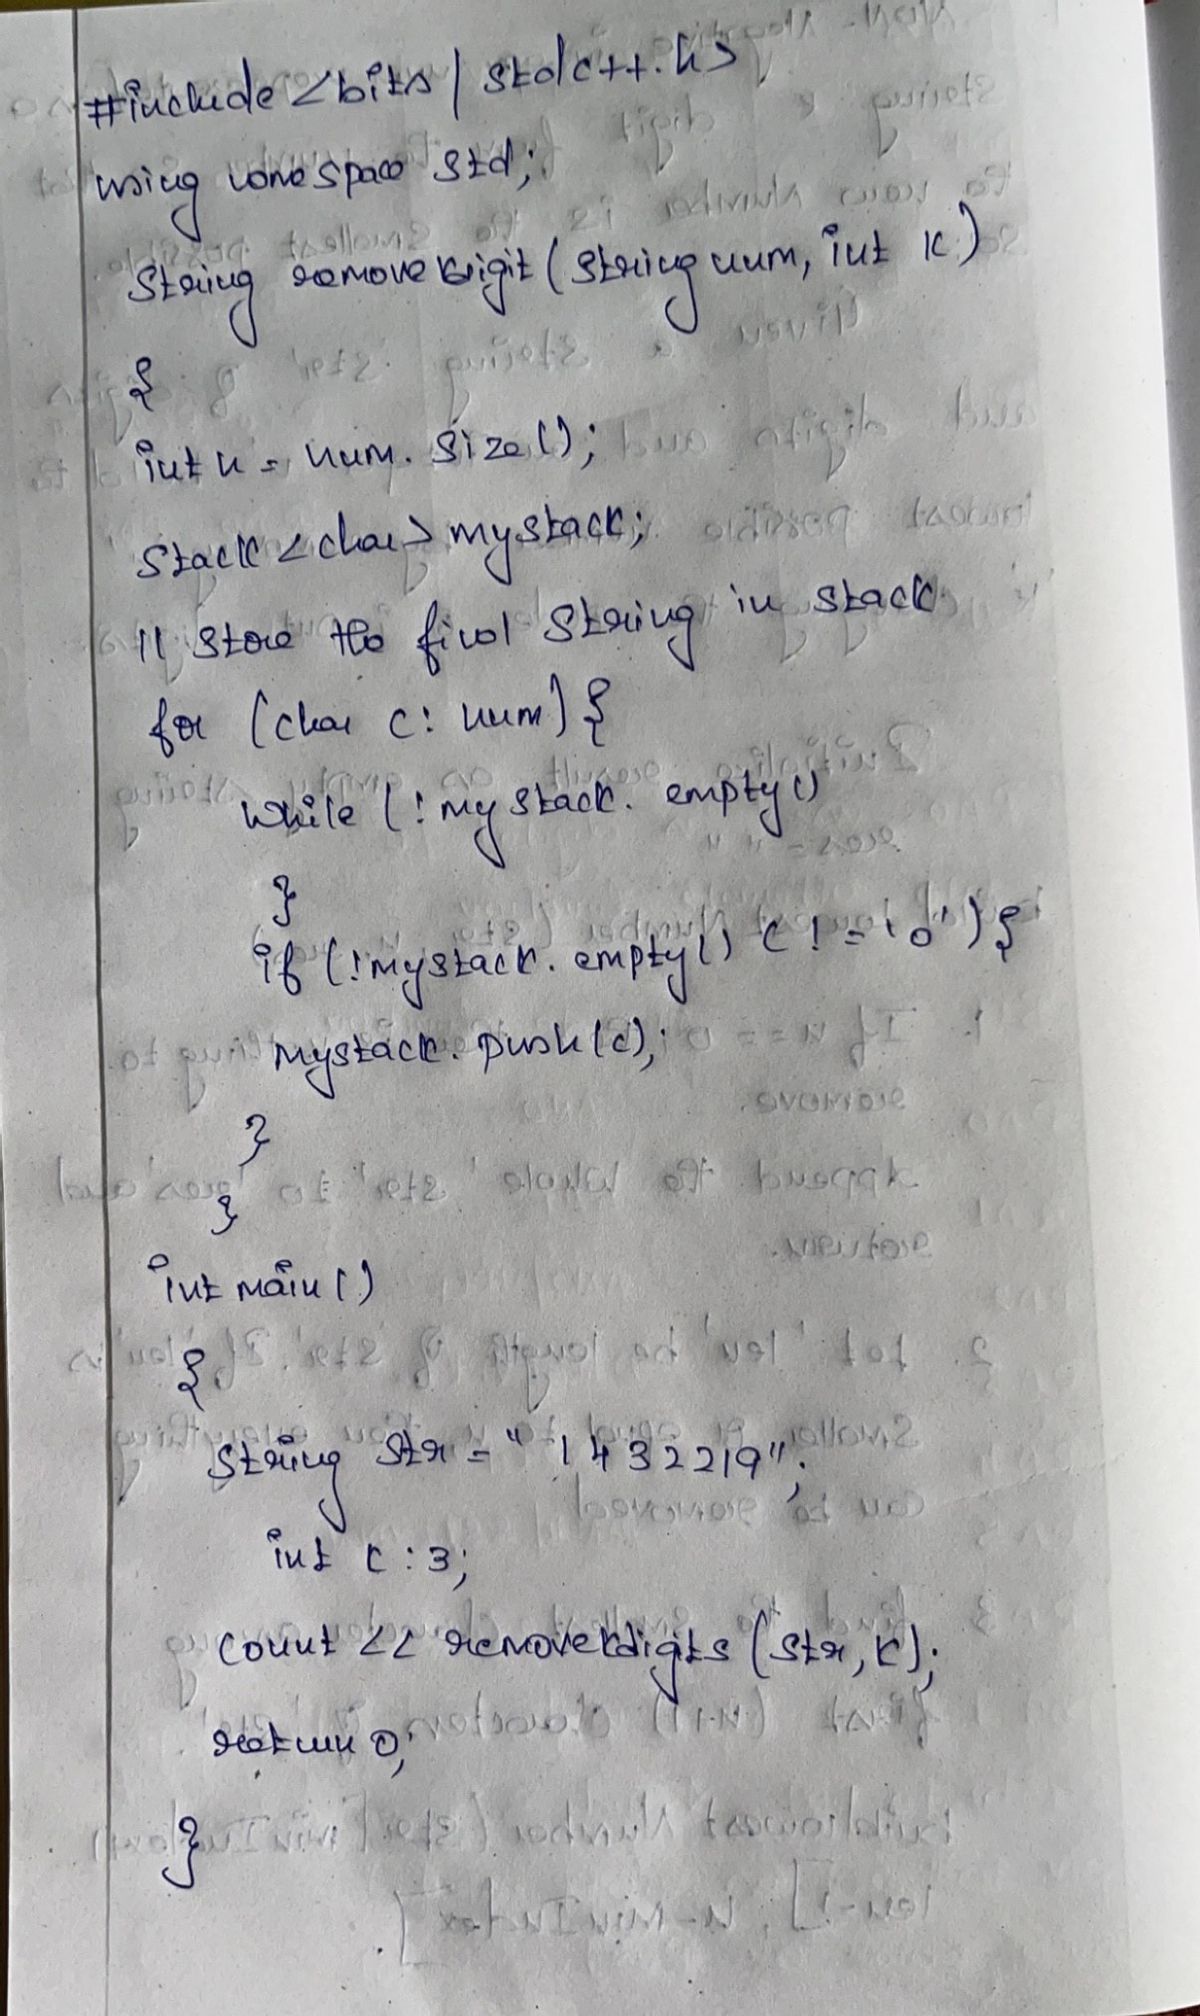 #include <bits/stdc++.h>
using namespace std;
String removekdigit(string num, int k)
{
int n = num.size();
Stack <char> mystack;
// store the final string in stack
for (char c: num) {
while (!mystack.empty()
}
if (!mystack.empty() c != '0') {
mystack.push(c);
}
}
int main()
{
string str = "1432219";
int k : 3;
Count << removekdigits (str, k);
return 0;
}